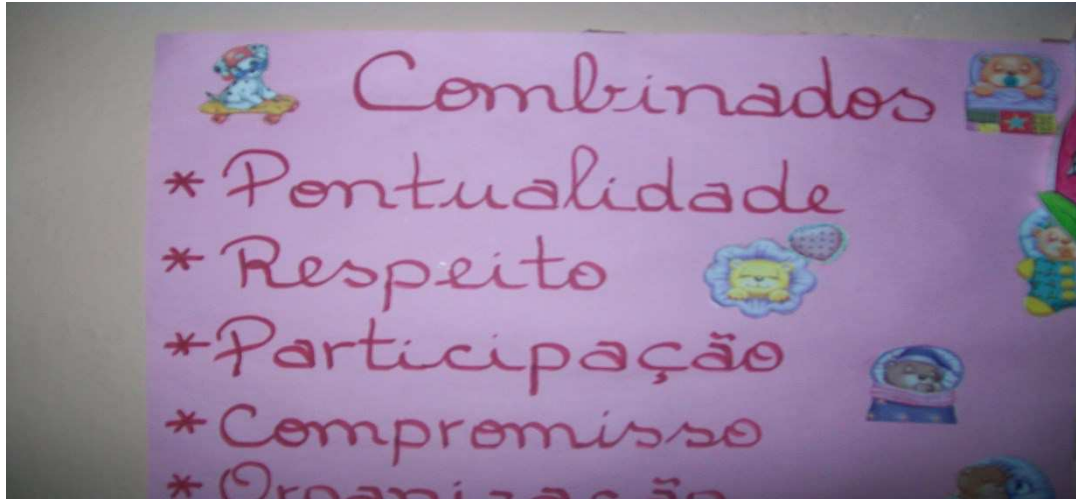 Combinados
* Pontualidade
* Respeito
* Participação
* Compromisso
* Organização